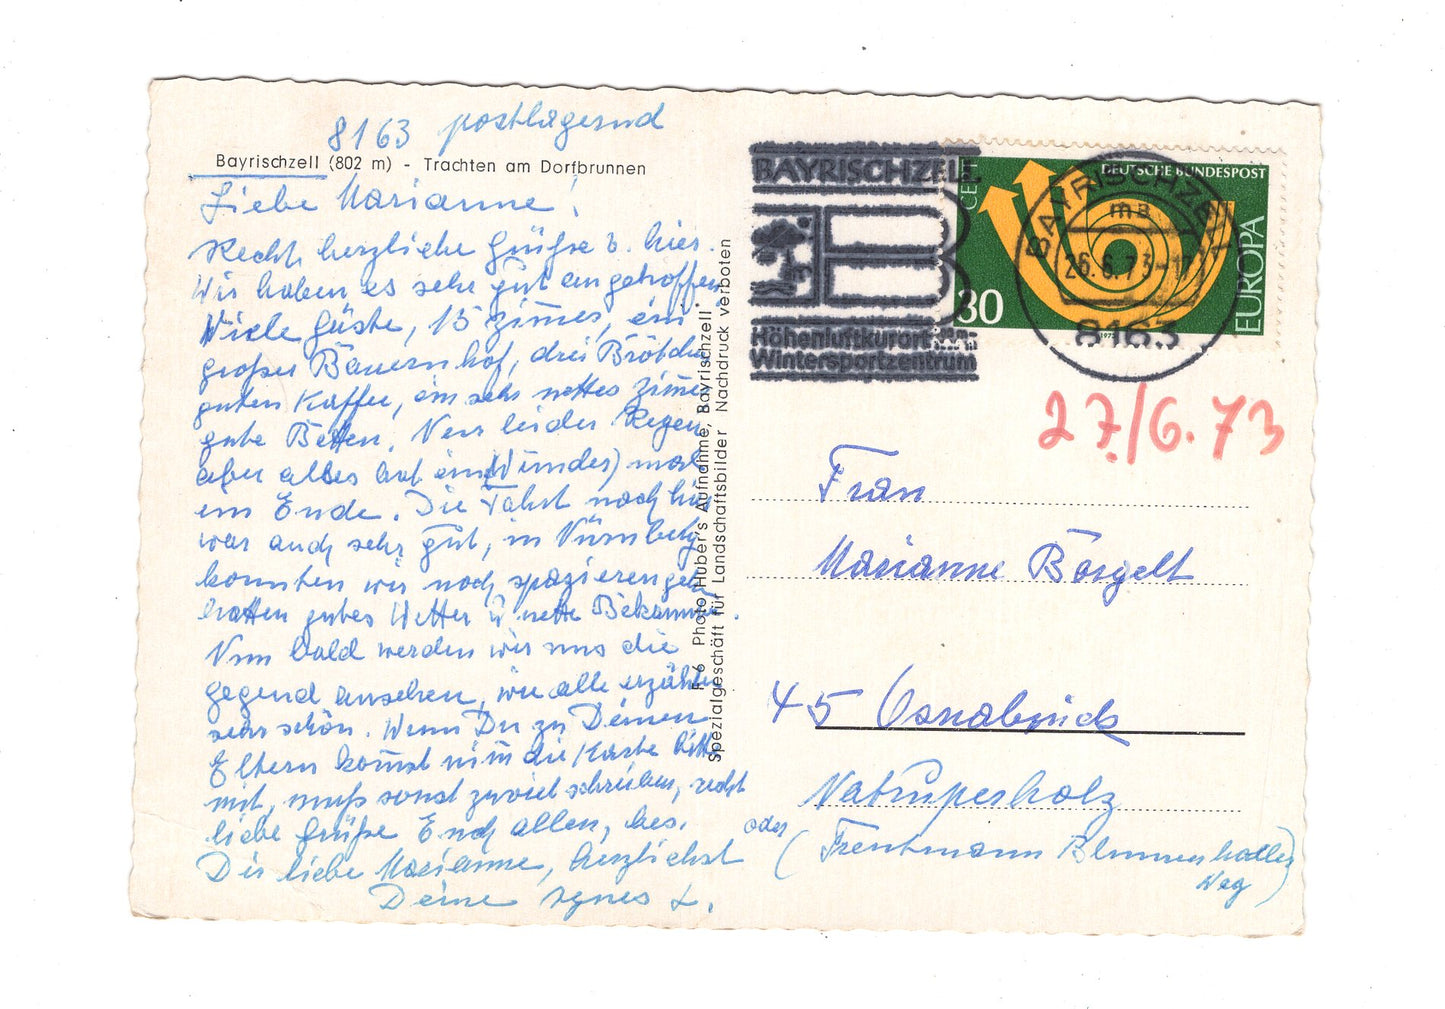 8163 postlagernd
Bayrischzell (802 m) - Trachten am Dorfbrunnen
Liebe Marianne!
Recht herzliche Grüße v. hier.
Wir haben es sehr gut angetroffen
Viele Gäste, 15 Zimmer, ein
großer Bauernhof, drei Brötchen
guten Kaffee, ein sehr nettes Zimmer
gute Betten. Nur leider Regen
aber alles hat ein(Wunder) mal
ein Ende. Die Fahrt nach hier
war auch sehr gut, in Nürnberg
konnten wir noch spazierengehn
hatten gutes Wetter u nette Bekannte.
Nun bald werden wir uns die
gegend ansehen, wie alle erzählen
sehr schön. Wenn Du zu Deinen
Eltern kommst nimm die Karte bitte
mit, muß sonst zuviel schreiben, recht
liebe Grüße Euch allen, bes.
Dir liebe Marianne, herzlichst
Deine Agnes L.
F 6 Photo Huber's Aufnahme, Bayrischzell
Spezialgeschäft für Landschaftsbilder Nachdruck verboten
BAYRISCHZELL
Höhenluftkurort
Wintersportzentrum
CEPT
DEUTSCHE BUNDESPOST
EUROPA
30
1973
BAYRISCHZELL
ma
26.6.73-17
8163
27/6.73
Frau
Marianne Börgelt
45 Osnabrück
Natruperholz
oder (Trentmann Blumenhaller
Weg)